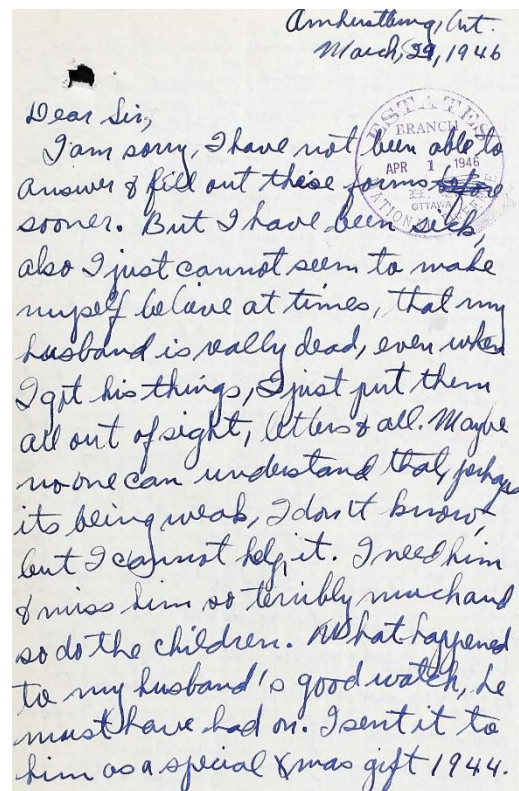 Amherstburg, Ont.
March, 29, 1946
Dear Sir,
I am sorry, I have not been able to
answer & fill out these forms before
sooner. But I have been sick,
also I just cannot seem to make
myself believe at times, that my
husband is really dead, even when
I got his things, I just put them
all out of sight, letters & all. Maybe
no one can understand that, perhaps
its being weak, I don't know,
but I cannot help it. I need him
& miss him so terribly much and
so do the children. What happened
to my husband's good watch, he
must have had on. I sent it to
him as a special Xmas gift 1944.
ESTATES
BRANCH
APR 1 1946
OTTAWA